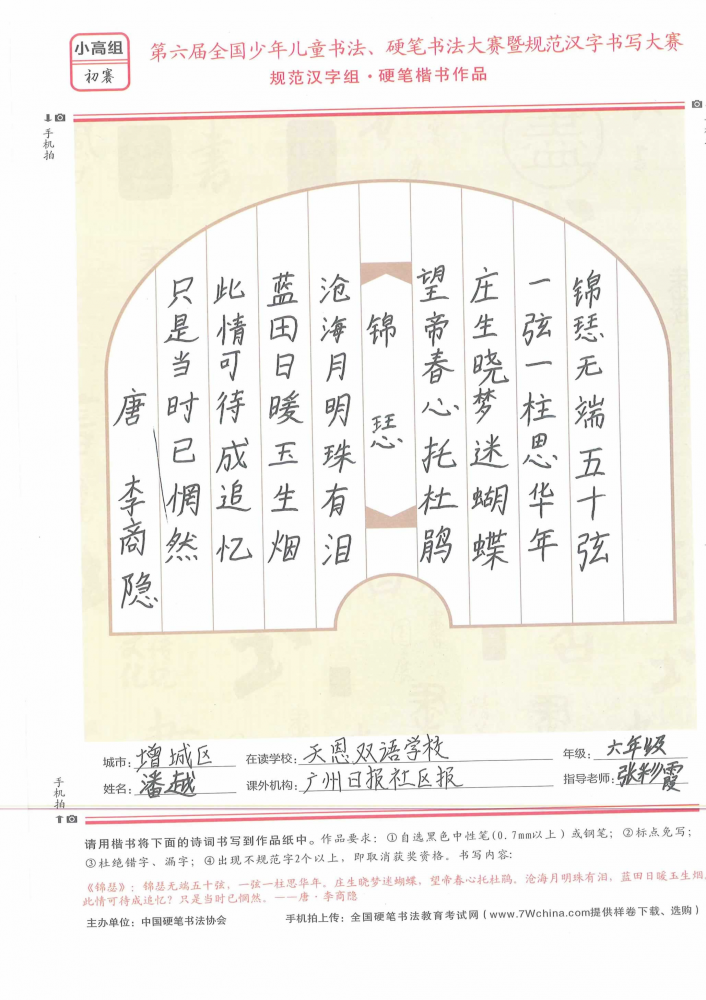 小高组
初赛
第六届全国少年儿童书法、硬笔书法大赛暨规范汉字书写大赛
规范汉字组·硬笔楷书作品
手机拍
锦瑟无端五十弦
一弦一柱思华年
庄生晓梦迷蝴蝶
望帝春心托杜鹃
锦瑟
沧海月明珠有泪
蓝田日暖玉生烟
此情可待成追忆
只是当时已惘然
唐 李商隐
城市：增城区 在读学校：天恩双语学校 年级：六年级
姓名：潘越 课外机构：广州日报社区报 指导老师：张彩霞
手机拍
请用楷书将下面的诗词书写到作品纸中。作品要求：①自选黑色中性笔(0.7mm以上）或钢笔；②标点免写；
③杜绝错字，漏字；④出现不规范字2个以上，即取消获奖资格。书写内容：
《锦瑟》：锦瑟无端五十弦，一弦一柱思华年。庄生晓梦迷蝴蝶，望帝春心托杜鹃。沧海月明珠有泪，蓝田日暖玉生烟。
此情可待成追忆？只是当时已惘然。——唐·李商隐
主办单位：中国硬笔书法协会 手机拍上传：全国硬笔书法教育考试网（www.7Wchina.com提供样卷下载、选购）